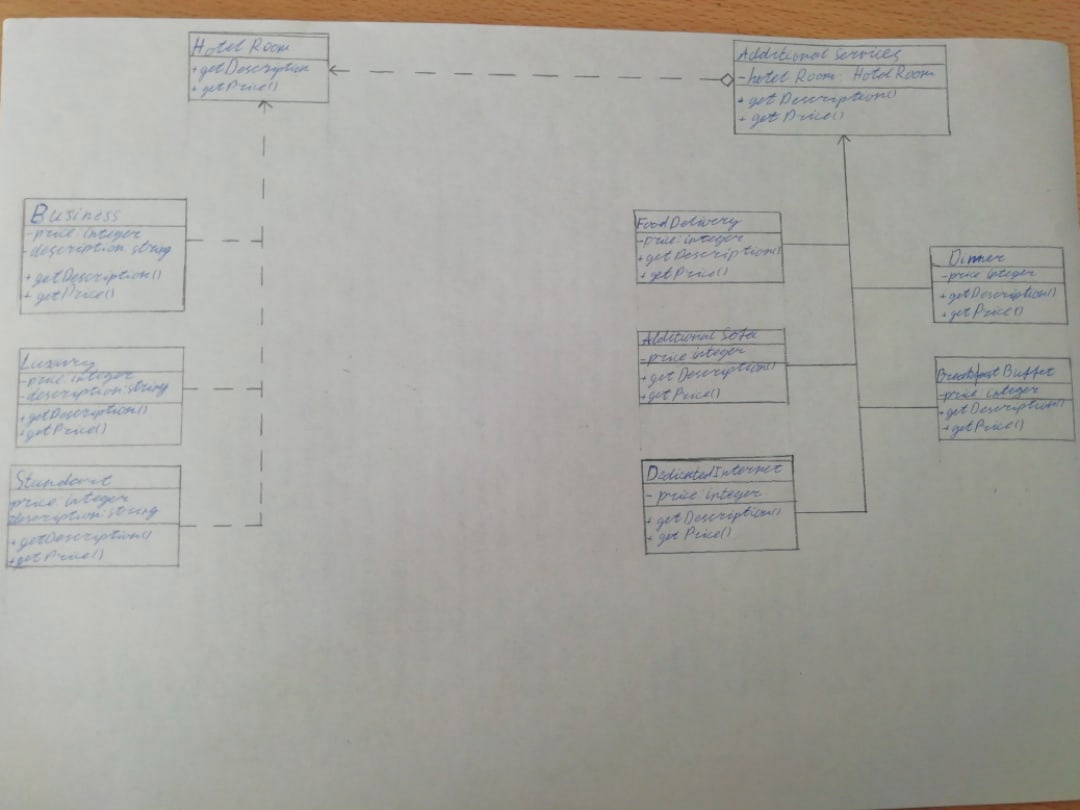 Hotel Room
+ getDescription
+ getPrice()
Additional Services
- hotel Room: HotelRoom
+ getDescription()
+ getPrice()
Business
- price: integer
- description: string
+ getDescription()
+ getPrice()
Luxury
- price: integer
- description: string
+ getDescription()
+ getPrice()
Standart
- price: integer
description: string
+ getDescription()
+ getPrice()
FoodDelivery
- price: integer
+ getDescription()
+ getPrice()
Additional Sofa
- price: integer
+ getDescription()
+ getPrice()
DedicatedInternet
- price: integer
+ getDescription()
+ getPrice()
Dinner
- price: integer
+ getDescription()
+ getPrice()
Breakfast Buffet
- price: integer
+ getDescription()
+ getPrice()